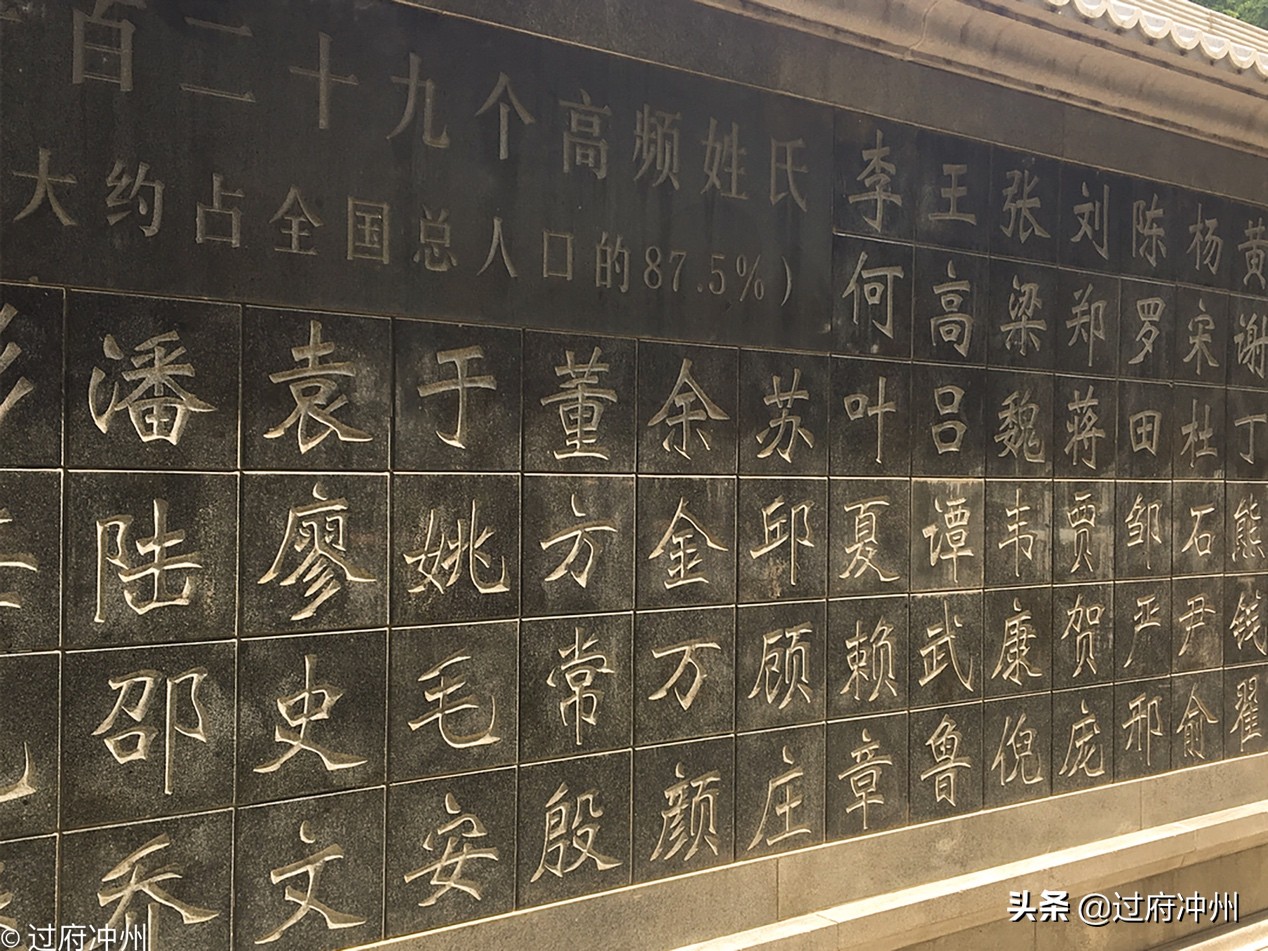 百二十九个高频姓氏
大约占全国总人口的87.5%）
李 王 张 刘 陈 杨 黄
何 高 梁 郑 罗 宋 谢
潘 袁 于 董 余 苏 叶 吕 魏 蒋 田 杜 丁
陆 廖 姚 方 金 邱 夏 谭 韦 贾 邹 石 熊
邵 史 毛 常 万 顾 赖 武 康 贺 严 尹 钱
乔 文 安 殷 颜 庄 章 鲁 倪 庞 邢 俞 翟
头条 @过府冲州
© 过府冲州